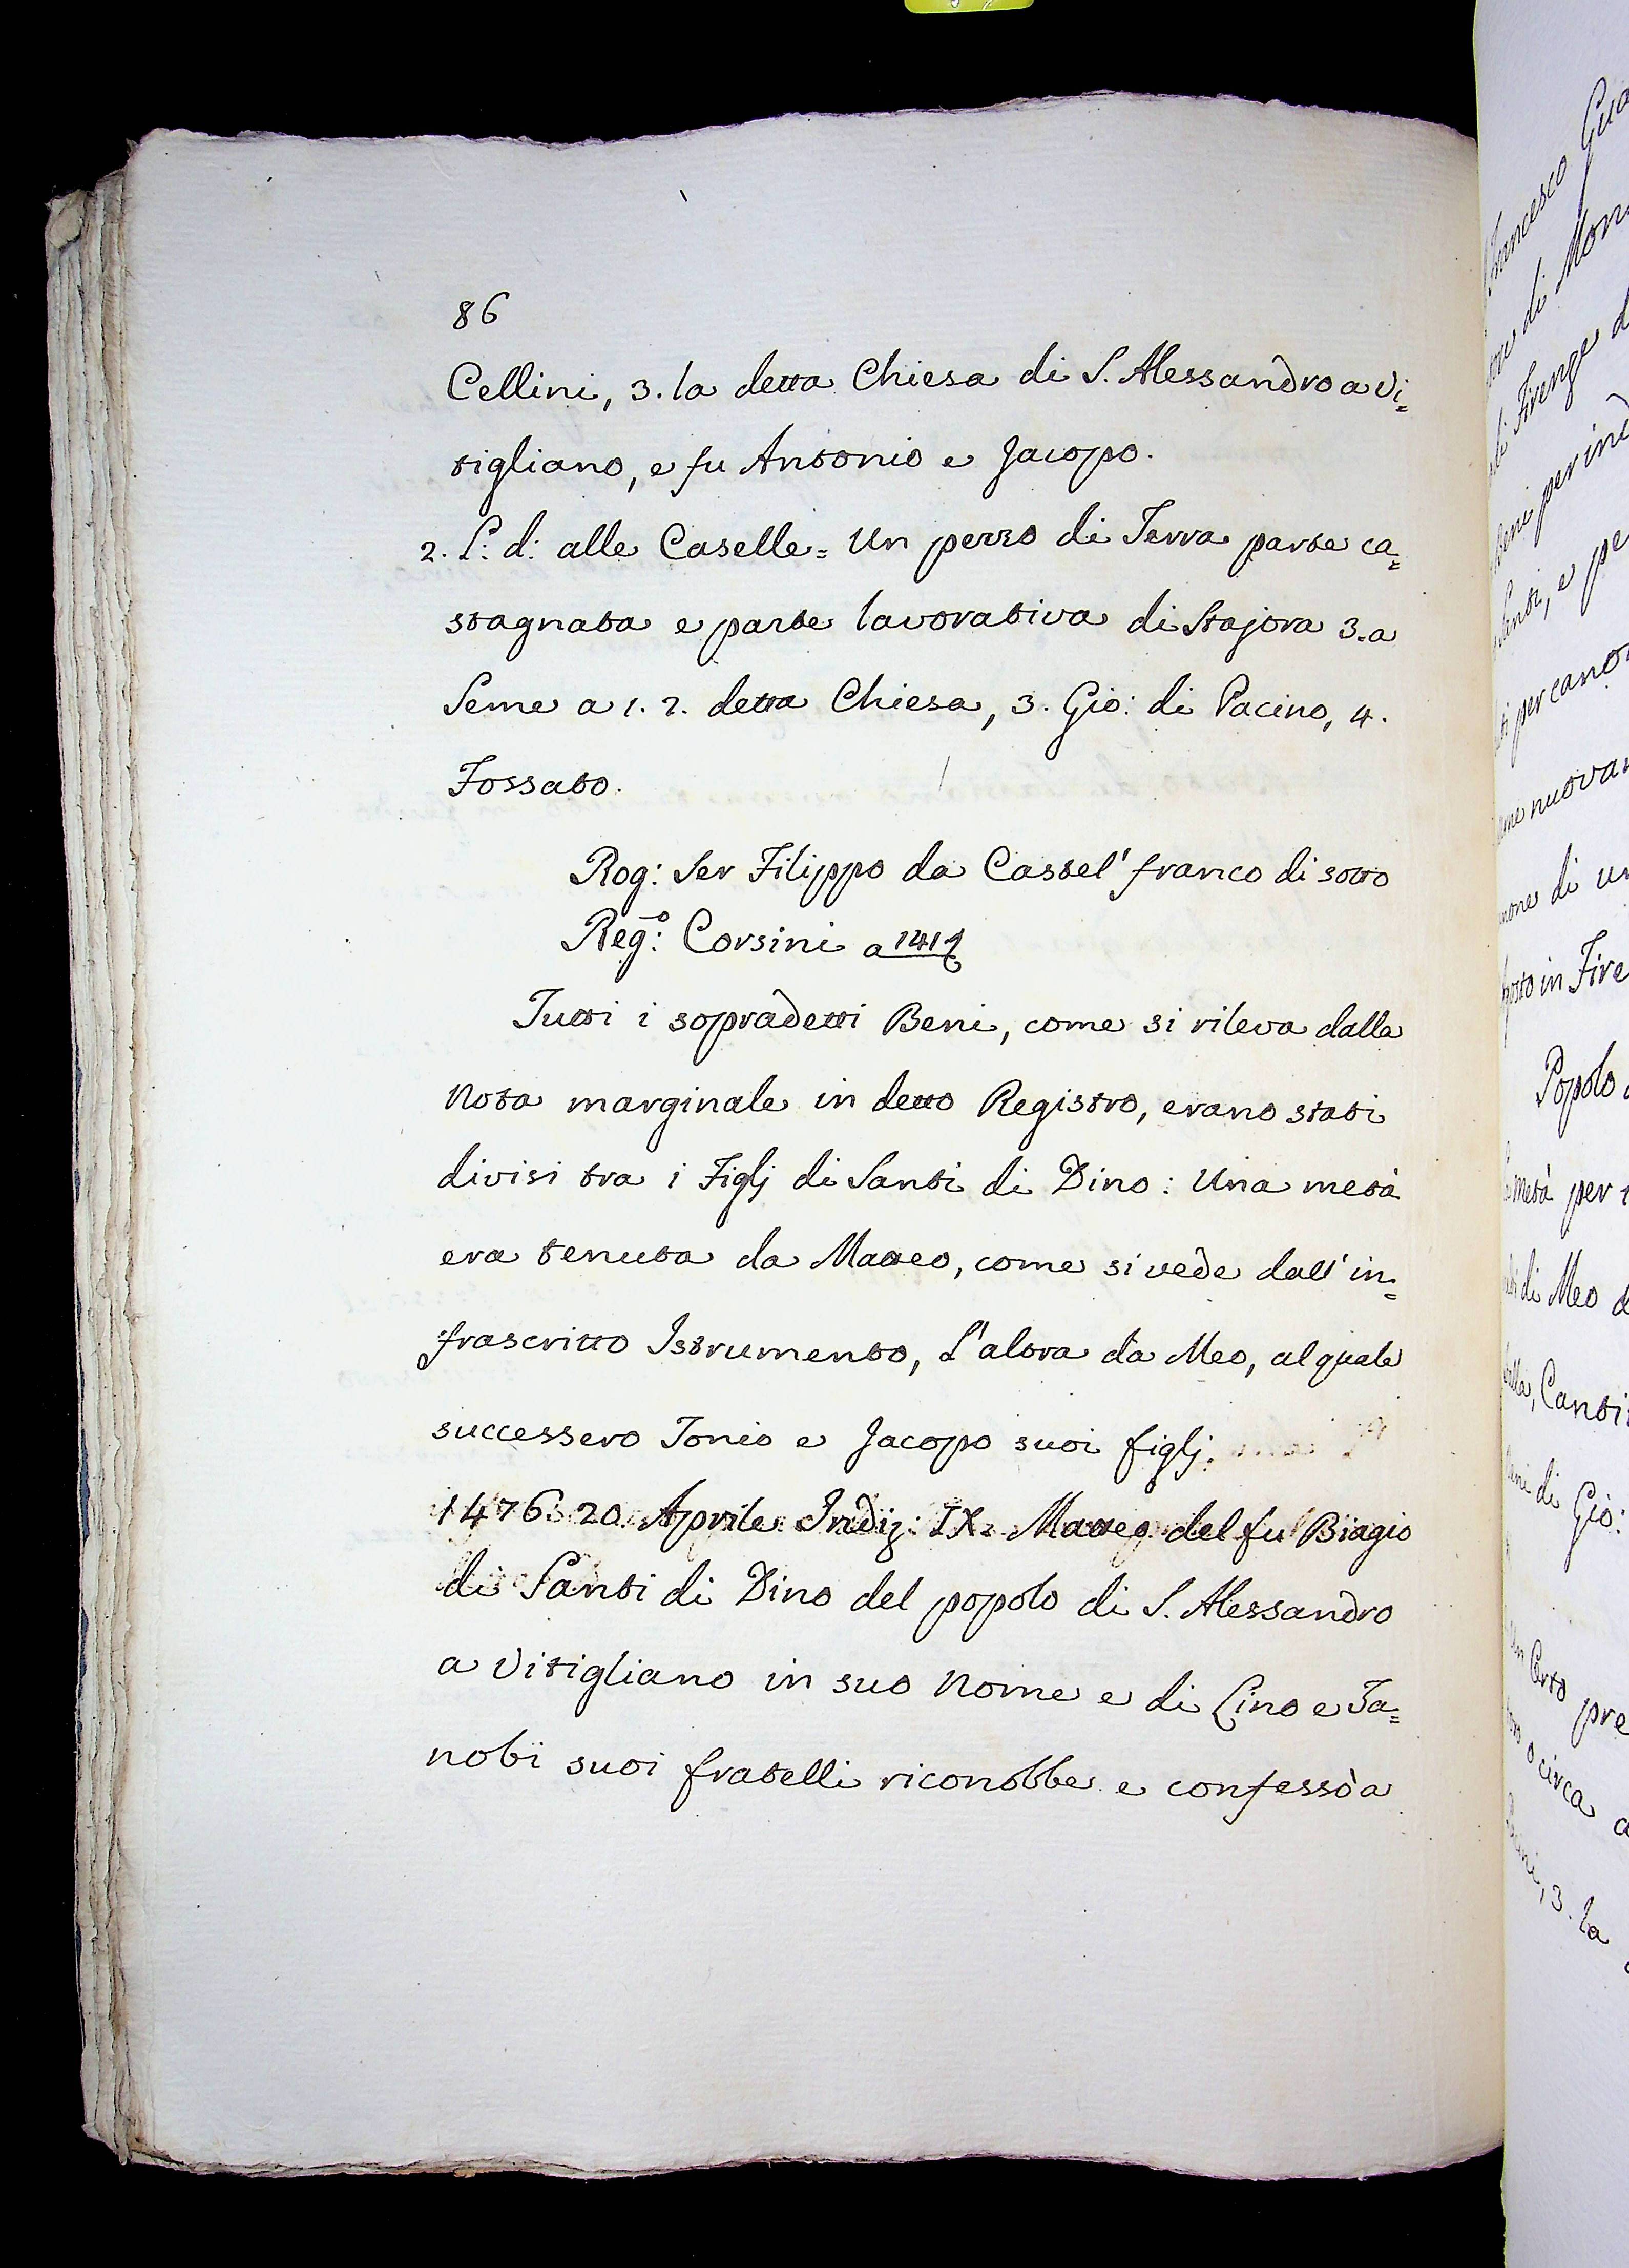 86
Cellini, 3. la detta Chiesa di S. Alessandro a Vi=
tigliano, e fu Antonio e Jacopo.
2. L: d: alle Caselle = Un pezzo di Terra parte ca=
stagnata e parte lavorativa di Stajora 3. a
Seme a 1. 2. detta Chiesa, 3. Gio: di Pacino, 4.
Fossato.
Rog: Ser Filippo da Castel' franco di sotto
Reg:o Corsini a
Tutti i sopradetti Beni, come si rileva dalla
Nota marginale in detto Registro, erano stati
divisi tra i Figlj di Santi di Dino: Una metà
era tenuta da Matteo, come si vede dall' in=
frascritto Istrumento, L'altra da Meo, al quale
successero Tonio e Jacopo suoi figlj.
1476. 20. Aprile Indiz: IX. Matteo del fu Biagio
di Santi di Dino del popolo di S. Alessandro
a Vitigliano in suo Nome e di Lino e Za=
nobi suoi fratelli riconobbe e confessò a
Francesco
di
di Firenze
Beni per
Santi, e
per
nuovam
di
in Fire
Popolo
metà per
di Meo
Santi
di Gio:
pre
o circa
3. la